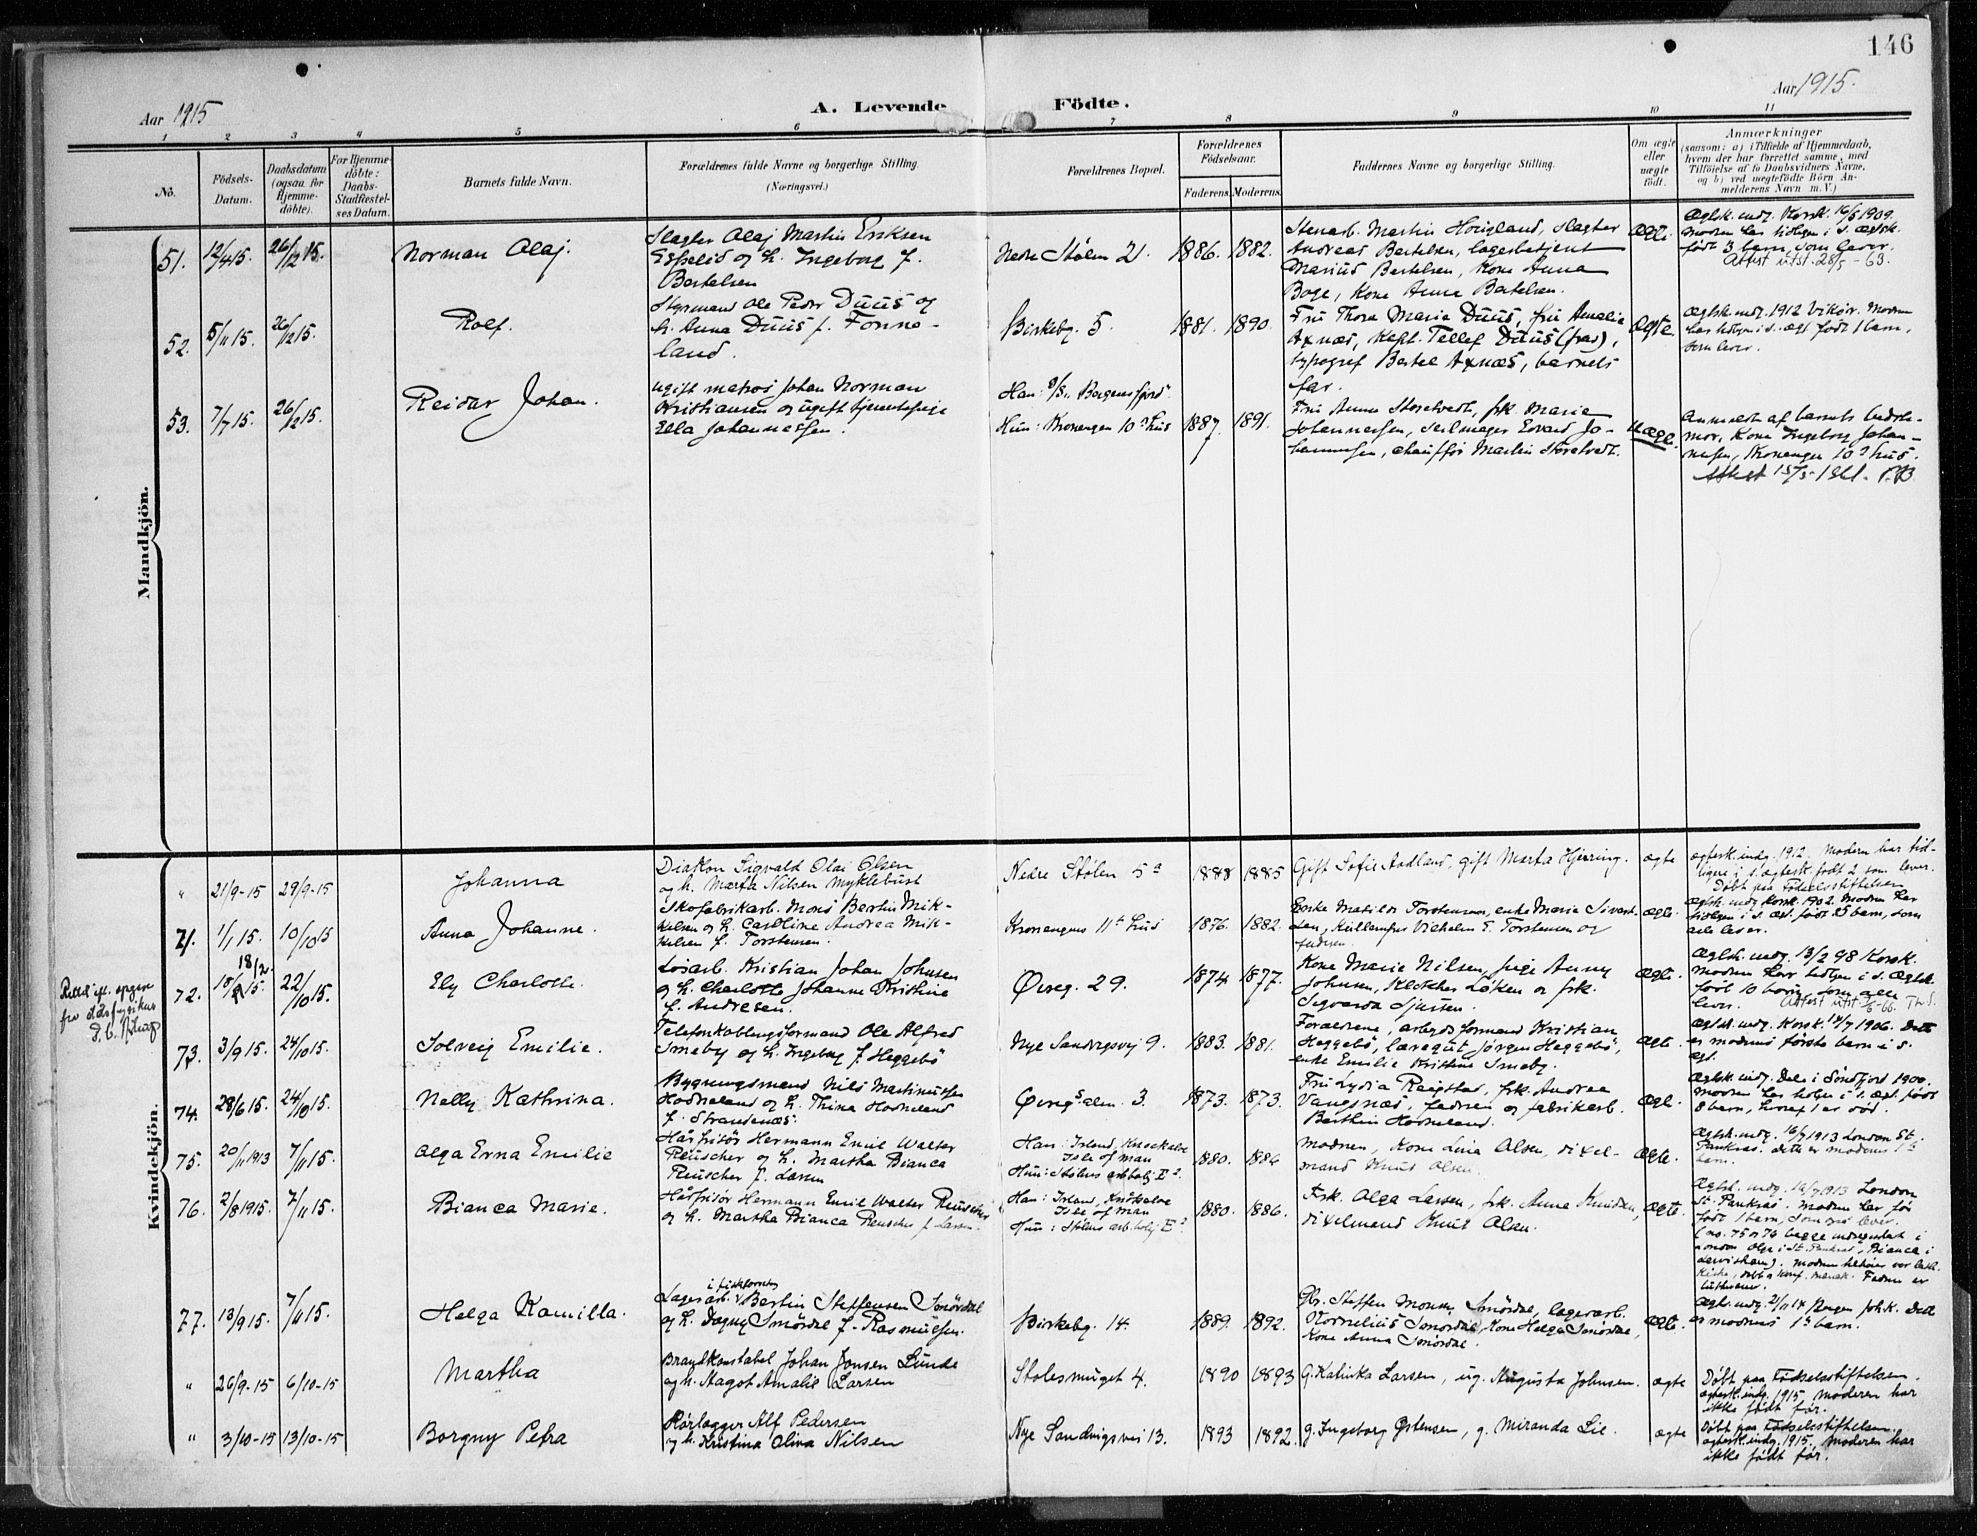 146
Aar 1915
A. Levende Födte.
Aar 1915.
1 2 3 4 5 6 7 8 9 10 11
No.
Födsels-Datum.
Daabsdatum (ogsaa for Hjemme-döbte).
For Hjemme-döbte: Daabs-Stadfæstel-ses Datum.
Barnets fulde Navn.
Forældrenes fulde Navne og borgerlige Stilling.
(Næringsvei.)
Forældrenes Bopæl.
Forældrenes Födselsaar.
Faderens. Moderens.
Faddernes Navne og borgerlige Stilling.
Om ægte eller uægte födt.
Anmærkninger
(saasom: a) i Tilfælde af Hjemmedaab,
hvem der har forrettet samme, med
Tilföielse af to Daabsvidners Navne,
og b) ved uegtefödte Börn An-
melderens Navn m. V.)
Mandkjön.
51. 12/4 15. 26/12 15. Norman Olaf.
Slagter Olaf Martin Eriksen
Espelid og h. Ingeborg f.
Bertelsen
Nedre Stølen 21. 1886. 1882.
Stenarb. Martin Hougland, slagter
Andreas Bertelsen, lagerbetjent
Marius Bertelsen, Kone Anna
Boge, Kone Anna Bertelsen.
Ægte.
Ægtsk. indg. Korsk. 16/5 1909.
Modren har tidligere i s. ægtsk.
født 3 barn, som lever.
Attest utst. 28/5 - 63.
52. 5/11 15. 26/12 15. Rolf.
Styrmand Ole Peder Duus og
h. Anna Duus f. Fonne-
land.
Birkebg. 5 1881. 1890.
Fru Thora Marie Duus, fru Amalia
Axnæs, Kapt. Tellef Duus (frav),
typograf Bertel Axnæs, barnets
far.
Ægte.
Ægtsk. indg. 1912 Vikør. Modren
har tidligere i s. ægt. født 1 barn,
som lever.
53. 7/7 15. 26/12 15. Reidar Johan.
Ugift matros Johan Norman
Kristiansen og ugift tjenestepige
Ella Johannessen.
Han: D/S "Bergensfjord"
Hun: Kronengen 10 hus 1887. 1891.
Fru Anna Storetvedt, frk. Marie
Johannessen, seilmager Edvard Jo-
hannessen, chauffør Martin Storetvedt.
Uægte.
Anmeldt af barnets bedste-
mor, Kone Ingeborg Johan-
nesen, Kronengen 10 hus.
Attest 15/5-1961.
Kvindekjön.
" 21/9-15 29/9-15 Johanna
Diakon Sigvald Olai Olsen
og h. Marta Nilsen Myklebust
Nedre Stølen 5 a 1888 1885
Gift Sofie Aadland, gift Marta Hjerring. ægte
ægtesk. indg. 1912. Modern har tid-
ligere i s. ægtesk. født 2 som lever.
Døbt paa Fødselsstiftelsen
71. 1/1 15. 10/10 15 Anna Johanne.
Skofabrikarb. Mons Bertin Mik-
kelsen og h. Caroline Andrea Mik-
kelsen f. Torstensen.
Kronengens 11te hus 1876. 1882.
Enke Matilde Torstensen, enke Marie Sivert-
sen, Vilhelm E. Torstensen og
fadren.
ægte.
Ægtsk. indg. Korsk. 1902. Modren har
tidligere i s. ægt. født 5 barn, som
alle lever.
18/2.
72. 22/10 15. Ely Charlotte.
Losarb. Kristian Johan Johnsen
og h. Charlotte Johanne Kristine
f. Andresen.
Øvreg. 29. 1874 1877.
Kone Marie Nilsen, pige Anny
Johnsen, Klokker Løken og frk.
Sigvarda Sjursen.
Ægte.
Ægtsk. indg. 13/2 98 Korsk.
Modren har tidligere i s. ægtsk.
født 10 barn, som alle
lever. Attest utst.
73. 3/9 15. 24/10 15. Solveig Emilie.
Telefonkoblingsformand Ole Alfred
Smeby og h. Ingeborg f. Heggebø
Nye Sandvigsvej 9. 1883. 1881.
Forældrene, arbejdsformand Kristian
Heggebø, læregut Jørgen Heggebø,
enke Emilie Kristine Smeby.
ægte.
Ægtsk. indg. Korsk. 14/7 1906. Dette
er modrens første barn i s.
ægt.
74. 28/6 15. 24/10 15. Nelly Kathrina.
Bygningsmand Nils Martinussen
Hodneland og h. Thina Hodneland
f. Strandenæs.
Øvregsalm. 3. 1873. 1873.
Fru Lydia Raugstad, frk. Andrea
Vangsnæs, fadren og fabrikarb.
Berthin Hodneland.
ægt.
Ægtsk. indg. Dale i Søndfjord 1900.
Modren har tidligere i s. ægt. født
8 barn, hvoraf 1 er død.
75. 20/11 1913 7/11 15. Olga Erna Emilie
Hårfrisør Hermann Emil Walter
Reuscher og h. Martha Bianca
Reuscher f. Larsen
Han: Isle of Man
Hun: Stølens arbbolig 1880. 1886
Modren, Kone Lina Olsen, dixel-
mand Knut Olsen.
Ægte.
Ægtsk. indg. 16/7 1913 London St.
Pankras. dette er modrens 1ste
barn.
76. 2/8 1915. 7/11 15. Bianca Marie.
Hårfrisør Hermann Emil Walter Reuscher
og h. Martha Bianca Reuscher f. Larsen.
Han: Isle of Man
Hun: Stølens arbbolig 1880. 1886.
Frk. Olga Larsen, frk. Anna Knudsen,
dixelmand Knut Olsen.
ægte.
Ægtsk. indg. 16/7 1913 London
St. Pankras. Modren har før
født 1 barn, som lever.
(no. 75 og 76 begge indregistrert i
London Olga i St. Pankras, Bianca i
Lewisham).
77. 13/9 15. 7/11 15. Helga Kamilla.
Lagerarb. Bertin Steffensen Smørdal
og h. Dagny Smørdal f. Rasmussen.
Birkebg. 14. 1889. 1892.
Gbr. Steffen Monsen Smørdal, lagerarb.
Kornelius Smørdal, Kone Helga Smørdal,
Kone Anna Smørdal.
ægte.
Ægtsk. indg. 2/11 14 Bergen Joh.k. Dette
er modrens 1ste barn.
" 26/9-15 6/10-15 Martha
Brandkonstabel Johan Jonsen Lunde
og h. Magot Amalie Larsen
Stølesmuget 4. 1890 1893
G. Katinka Larsen, ug. Augusta Johnsen. ægte
Døbt paa Fødselsstiftelsen.
ægtesk. indg. 1915, moderen har
ikke født før.
" 3/10-15 13/10-15 Borgny Petra
Rørlægger Alf Pedersen
og h. Kristina Oliva Nilsen
Nye Sandvigsvei 13. 1893 1892.
g. Ingeborg Østensen, g. Miranda Lie. ægte
Døbt paa Fødselsstiftelsen
ægtesk. indg. 1915. Moderen har
ikke født før.